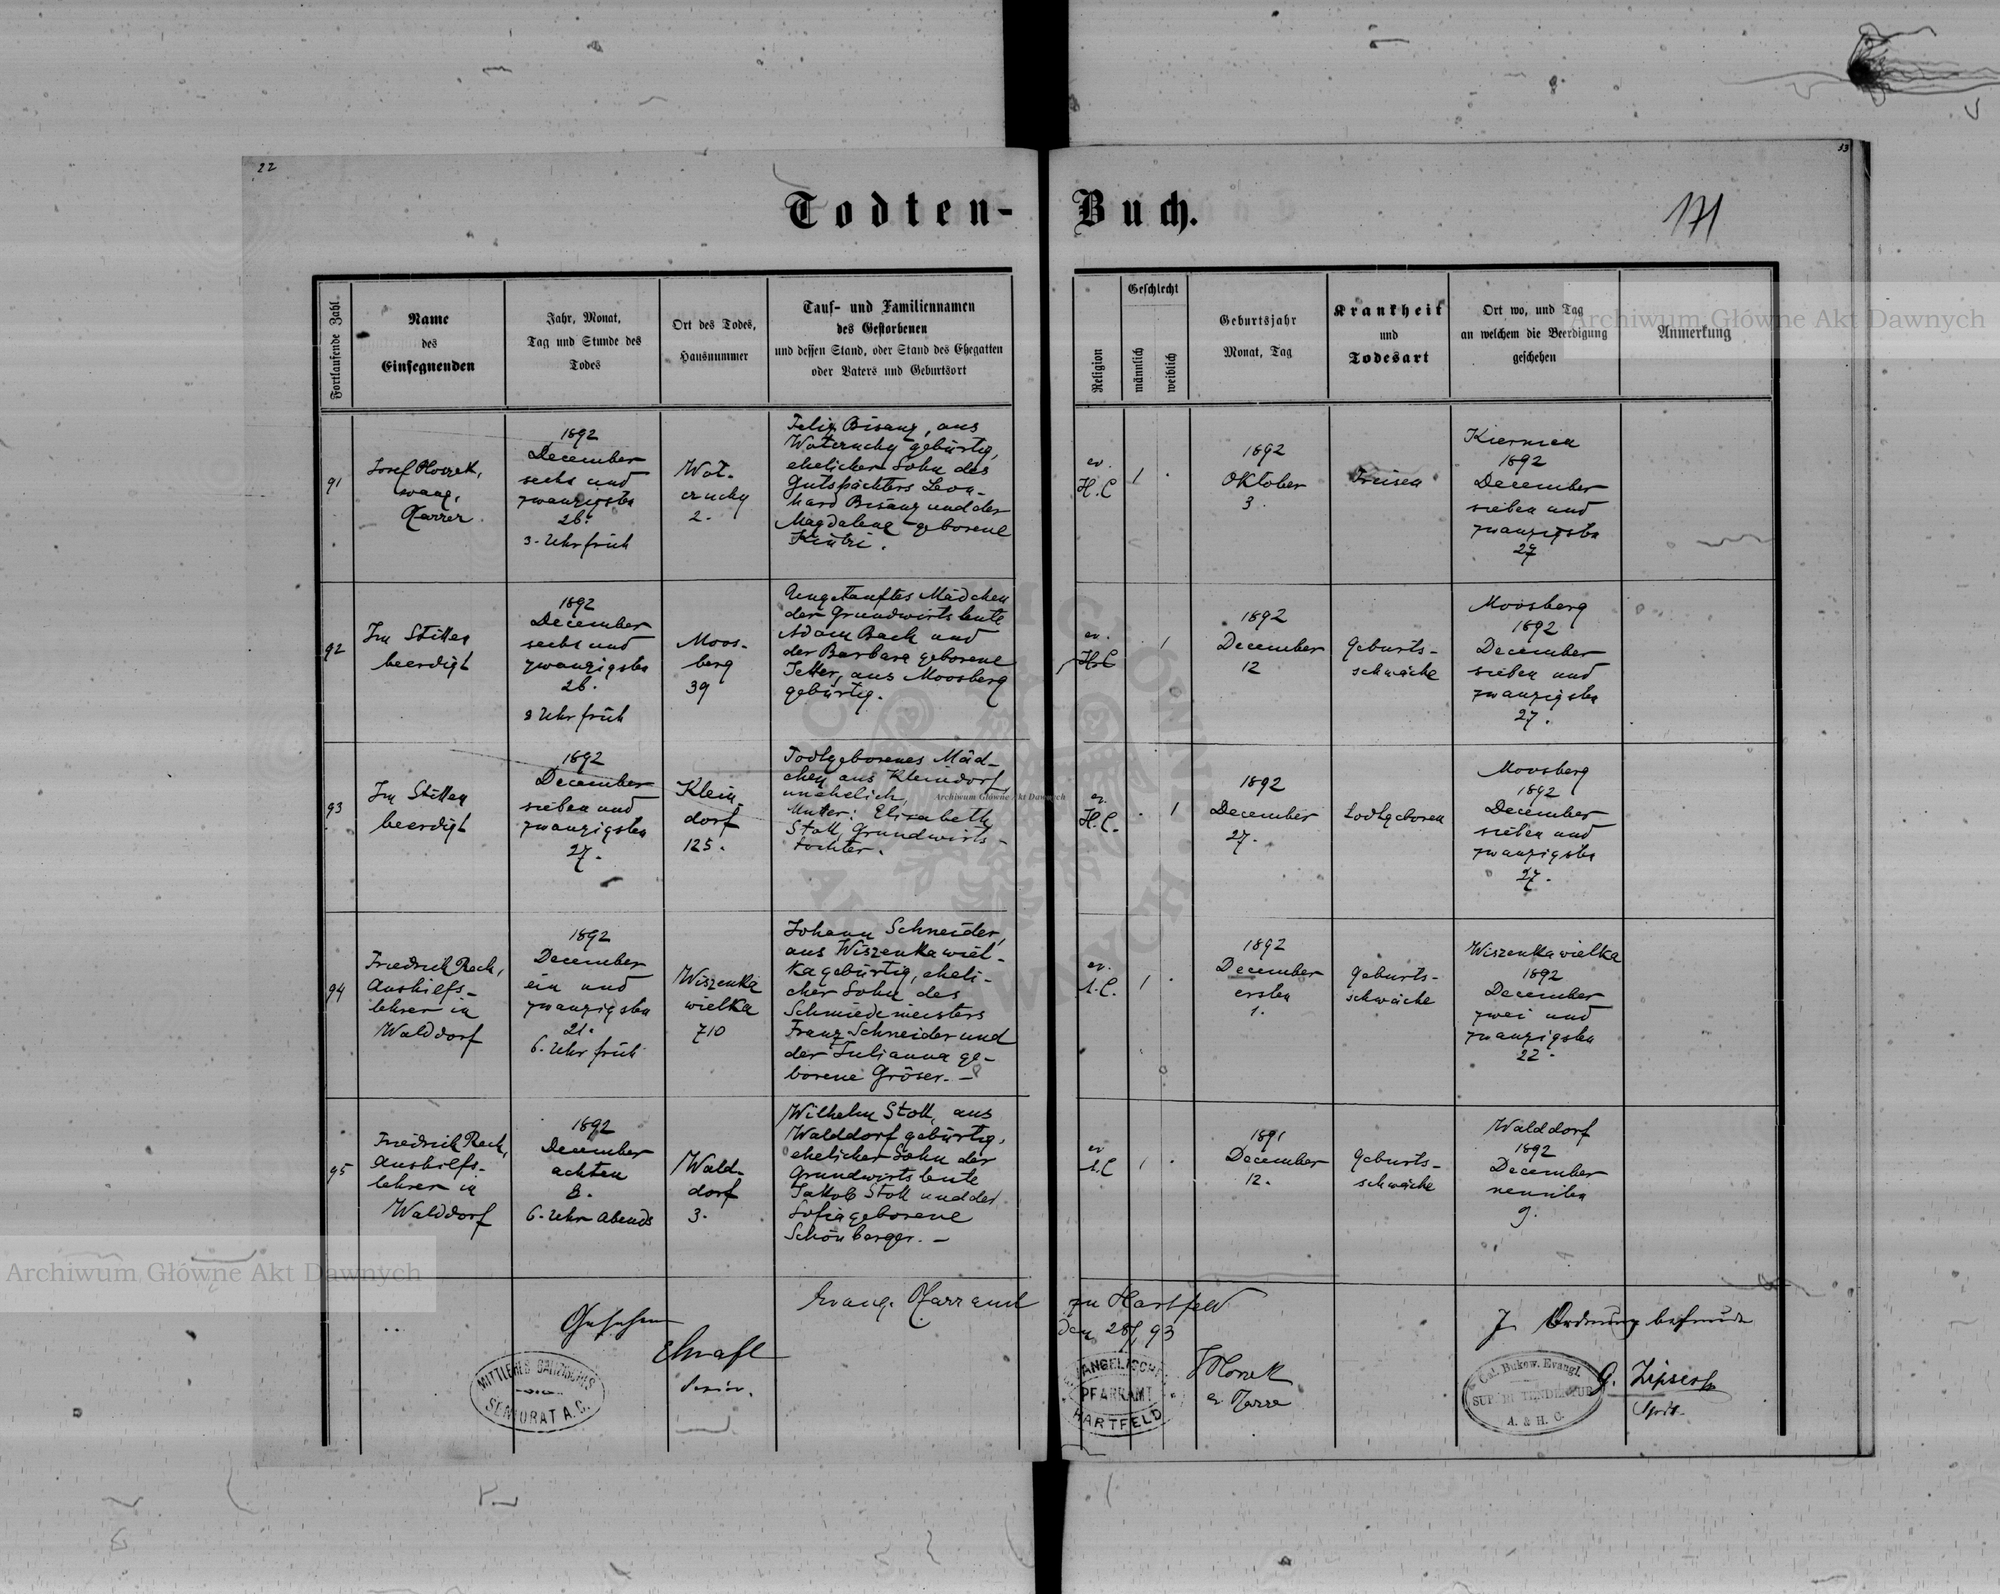 22
33
Todten-Buch.
171
Fortlaufende Zahl
Name
des
Einsegnenden
Jahr, Monat,
Tag und Stunde des
Todes
Ort des Todes,
Hausnummer
Tauf- und Familiennamen
des Gestorbenen
und dessen Stand, oder Stand des Ehegatten
oder Vaters und Geburtsort
Religion
Geschlecht
männlich
weiblich
Geburtsjahr
Monat, Tag
Krankheit
und
Todesart
Ort wo, und Tag
an welchem die Beerdigung
geschehen
Anmerkung
91
Josef
evang.
Pfarrer
1892
December
sechs und
zwanzigsten
26.
3. Uhr früh
Wot-
czuchy
2.
Felix Bisanz, aus
Wotczuchy gebürtig,
ehelicher Sohn des
Gutspächters Leon-
hard Bisanz und der
Magdalena geborene
ev.
H.C
1 .
1892
Oktober
3.
Fraisen
1892
December
sieben und
zwanzigsten
27
92
Im Stillen
beerdigt
1892
December
sechs und
zwanzigsten
26.
Uhr früh
Moos-
berg
39
Ungetauftes Mädchen
der Grundwirtsleute
Adam Bach und
der Barbara geborene
Jetter, aus Moosberg
gebürtig.
ev.
H.C
1
1892
December
12
Geburts-
schwäche
Moosberg
1892
December
sieben und
zwanzigsten
27.
93
Im Stillen
beerdigt
1892
December
sieben und
zwanzigsten
27.
Klein-
dorf
125.
Todtgeborenes Mäd-
chen aus Kleindorf,
unehelich,
Mutter: Elisabeth
Stoll, Grundwirts-
tochter.
ev.
H.C.
. 1
1892
December
27.
todtgeboren
Moosberg
1892
December
sieben und
zwanzigsten
27.
94
Friedrich Rech,
Aushilfs-
lehrer in
Walddorf
1892
December
ein und
zwanzigsten
21.
6. Uhr früh
Wiszenka
wielka
710
Johann Schneider,
aus Wiszenka wiel-
ka gebürtig, eheli-
cher Sohn des
Schmiedemeisters
Franz Schneider und
der Julianna ge-
borene Gröser. –
ev.
A.C.
1 .
1892
December
ersten
1.
Geburts-
schwäche
Wiszenka wielka
1892
December
zwei und
zwanzigsten
22.
95
Friedrich Rech,
Aushilfs-
lehrer in
Walddorf
1892
December
achten
8.
6. Uhr Abends
Wald-
dorf
3.
Wilhelm Stoll, aus
Walddorf gebürtig,
ehelicher Sohn der
Grundwirtsleute
Jakob Stoll und der
Sofia geborene
Schönberger. –
ev
A.C
1 .
1891
December
12.
Geburts-
schwäche
Walddorf
1892
December
neunten
9.
Evang. Pfarramt zu Hartfeld
den 28/1 93
Gesehen
Senior.
MITTLERES GALIZISCHES
SENIORAT A.C.
EVANGELISCHES
PFARRAMT
HARTFELD
In Ordnung befunden
Gal. Bukow. Evangl.
SUPERINTENDENTUR
A. & H. C.
Archiwum Główne Akt Dawnych
Archiwum Główne Akt Dawnych
Archiwum Główne Akt Dawnych